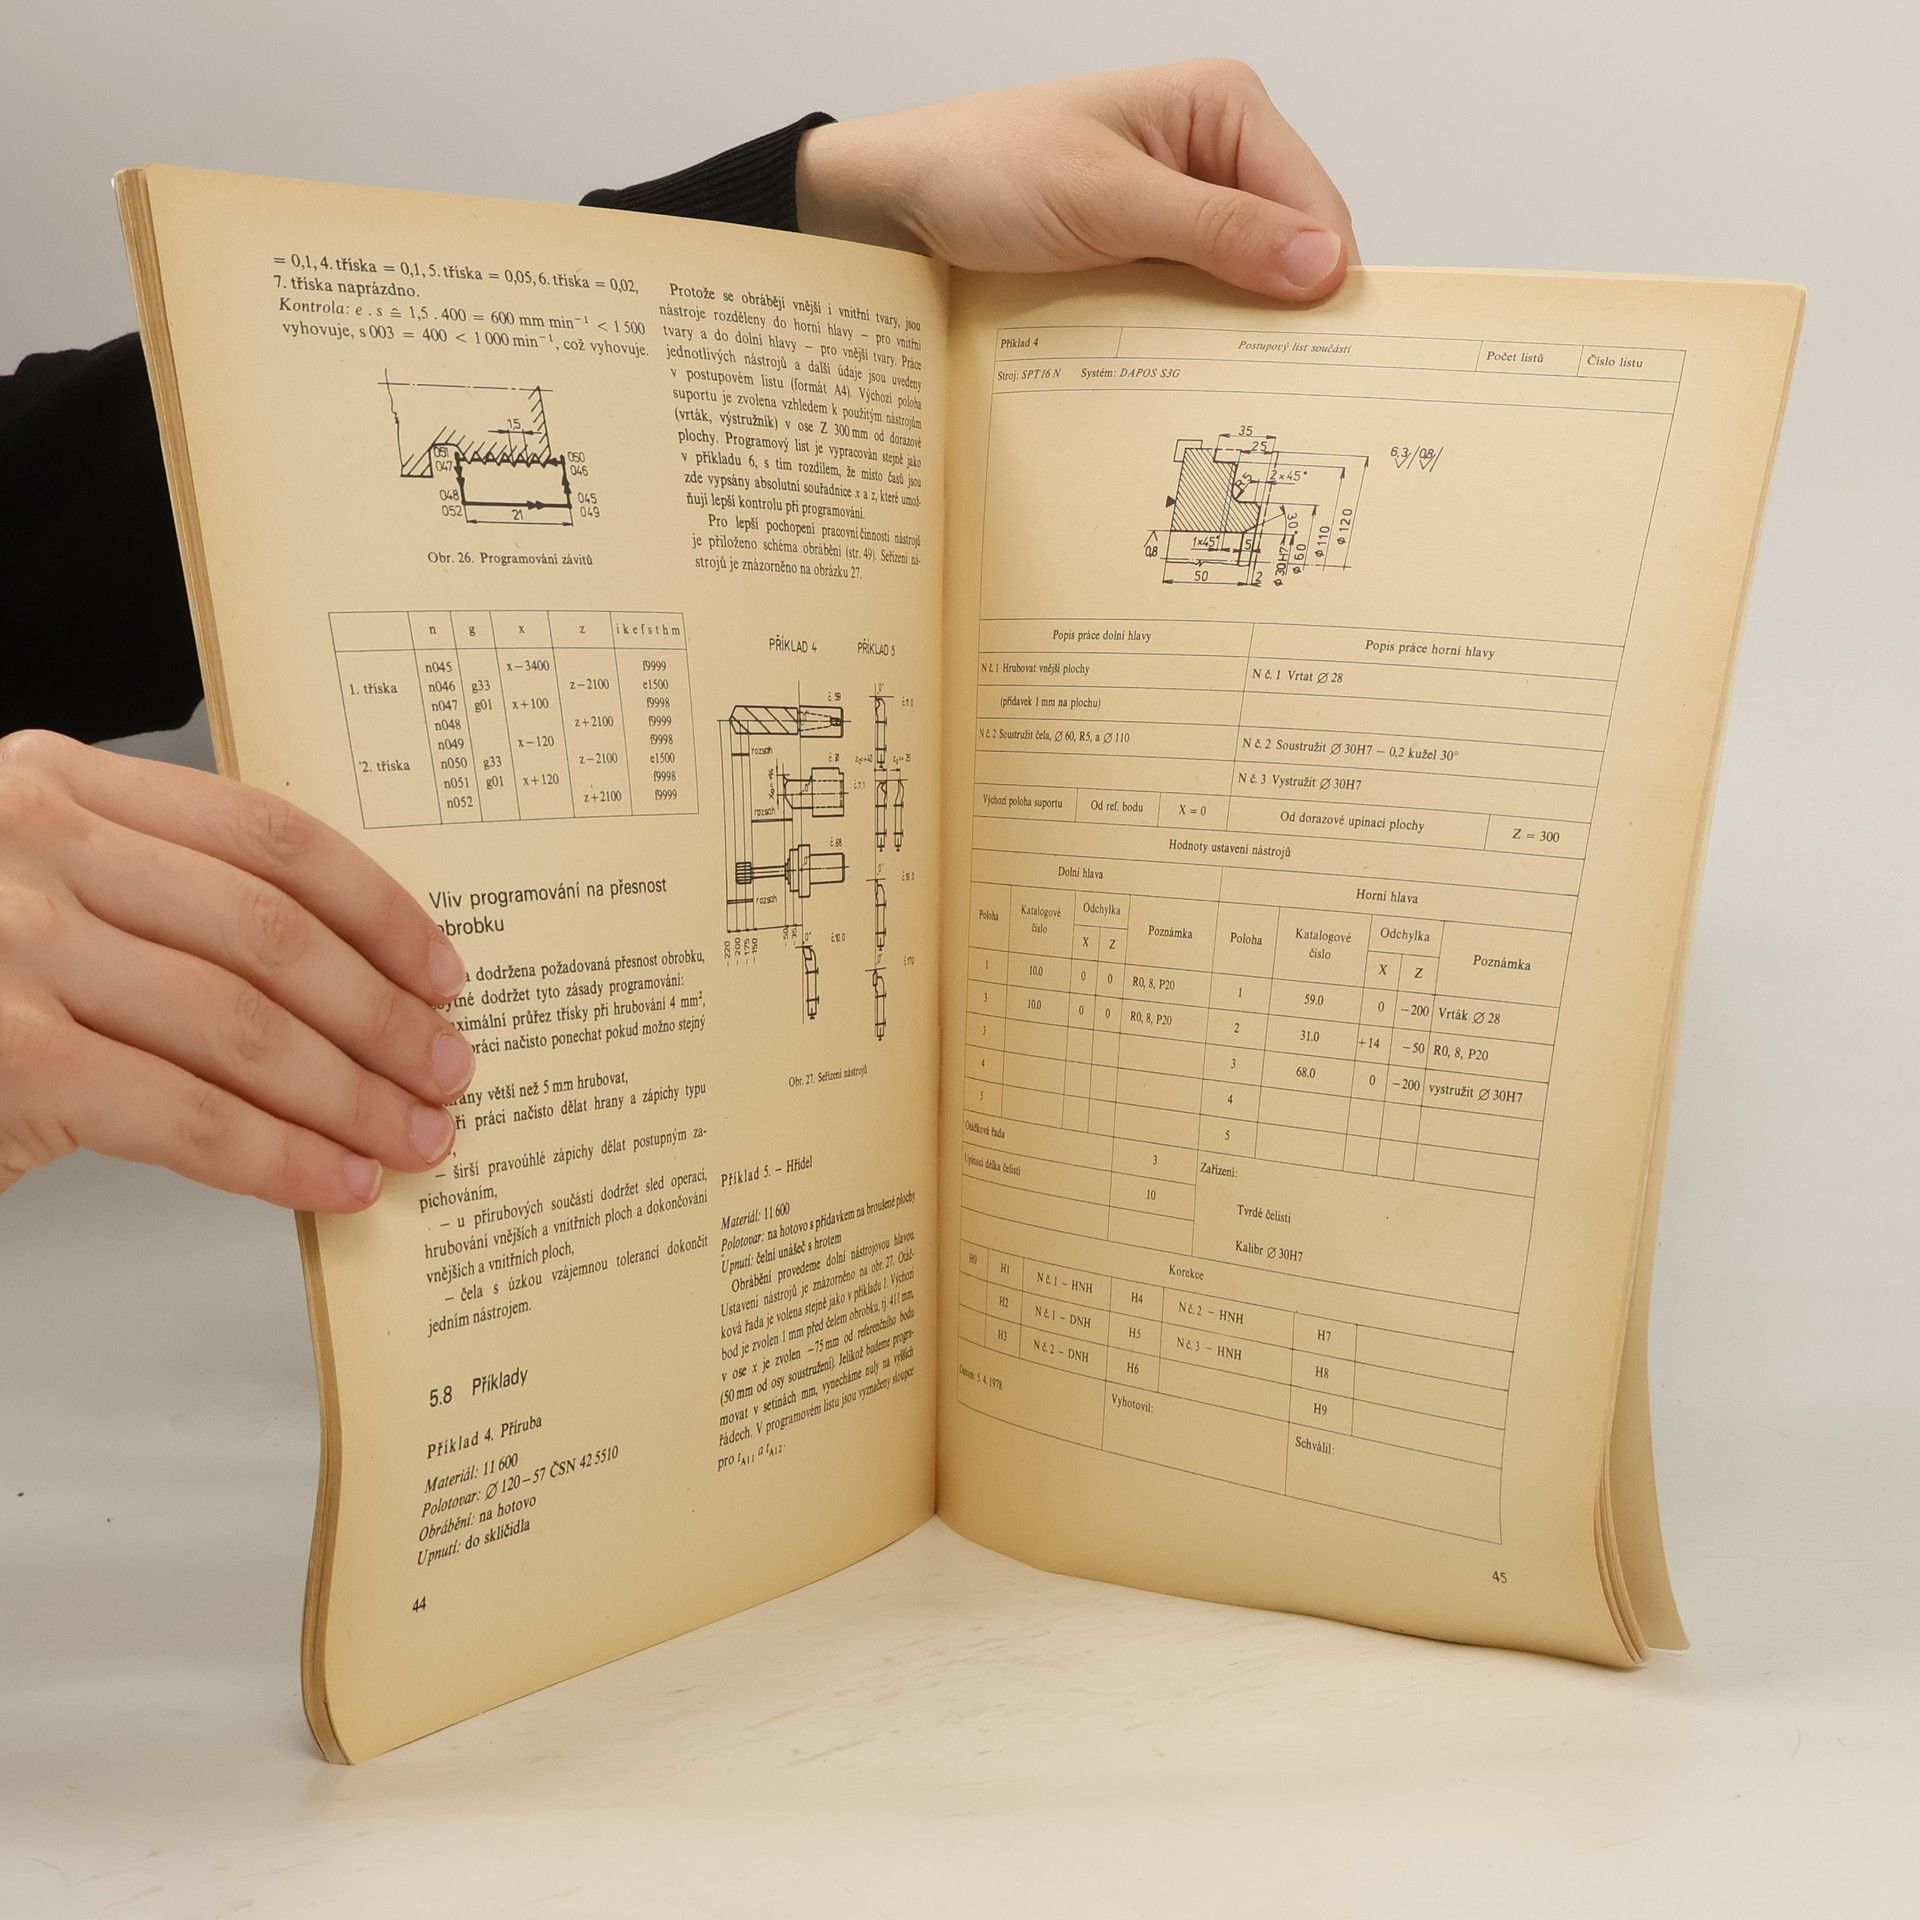 = 0,1, 4. tříska = 0,1, 5. tříska = 0,05, 6. tříska = 0,02,
7. tříska naprázdno.
Kontrola: e . s ≙ 1,5 . 400 = 600 mm min⁻¹ < 1 500
vyhovuje, s 003 = 400 < 1 000 min⁻¹, což vyhovuje.
1,5
051
047
050
046
048
052
045
049
21
Obr. 26. Programování závitů
n g x z i k e f s t h m
1. tříska n045 x−3400 f9999
n046 g33 z−2100 e1500
n047 g01 x+100 f9998
n048 z+2100 f9999
2. tříska n049 x−120 f9998
n050 g33 z−2100 e1500
n051 g01 x+120 f9998
n052 z+2100 f9999
Vliv programování na přesnost
obrobku
dodržena požadovaná přesnost obrobku,
dodržet tyto zásady programování:
průřez třísky při hrubování 4 mm²,
práci načisto ponechat pokud možno stejný
větší než 5 mm hrubovat,
práci načisto dělat hrany a zápichy typu
– širší pravoúhlé zápichy dělat postupným za-
pichováním,
– u přírubových součástí dodržet sled operací,
hrubování vnějších a vnitřních ploch a dokončování
vnějších a vnitřních ploch,
– čela s úzkou vzájemnou tolerancí dokončit
jedním nástrojem.
5.8 Příklady
Příklad 4. Příruba
Materiál: 11 600
Polotovar: ∅ 120−57 ČSN 42 5510
Obrábění: na hotovo
Upnutí: do sklíčidla
44
Protože se obrábějí vnější i vnitřní tvary, jsou
nástroje rozděleny do horní hlavy – pro vnitřní
tvary a do dolní hlavy – pro vnější tvary. Práce
jednotlivých nástrojů a další údaje jsou uvedeny
v postupovém listu (formát A4). Výchozí poloha
suportu je zvolena vzhledem k použitým nástrojům
(vrták, výstružník) v ose Z 300 mm od dorazové
plochy. Programový list je vypracován stejně jako
v příkladu 6, s tím rozdílem, že místo časů jsou
zde vypsány absolutní souřadnice x a z, které umož-
ňují lepší kontrolu při programování.
Pro lepší pochopení pracovní činnosti nástrojů
je přiloženo schéma obrábění (str. 49). Seřízení ná-
strojů je znázorněno na obrázku 27.
PŘÍKLAD 4 PŘÍKLAD 5
č.59
rozsah
č.31
rozsah
č.68
rozsah
−220
−200
−175
−150
−50
−35
č.10.0
Obr. 27. Seřízení nástrojů
Příklad 5. – Hřídel
Materiál: 11 600
Polotovar: na hotovo s přídavkem na broušené plochy
Upnutí: čelní unášeč s hrotem
Obrábění provedeme dolní nástrojovou hlavou.
Ustavení nástrojů je znázorněno na obr. 27. Otáč-
ková řada je volena stejně jako v příkladu 1. Výchozí
bod je zvolen 1 mm před čelem obrobku, tj. 411 mm,
v ose x je zvolen −75 mm od referenčního bodu
(50 mm od osy soustružení). Jelikož budeme progra-
movat v setinách mm, vynecháme nuly na vyšších
řádech. V programovém listu jsou vyznačeny sloupce
pro t A11 a t A12.
Příklad 4 Postupový list součásti Počet listů Číslo listu
Stroj: SPT 16 N Systém: DAPOS S3G
35
25
2×45°
R5
6,3/ 0,8/
0,8
1×45°
5
50
2
30°
∅ 30H7
∅ 60
∅ 110
∅ 120
Popis práce dolní hlavy Popis práce horní hlavy
N č. 1 Hrubovat vnější plochy N č. 1 Vrtat ∅ 28
(přídavek 1 mm na plochu)
N č. 2 Soustružit čela, ∅ 60, R5, a ∅ 110 N č. 2 Soustružit ∅ 30H7 − 0,2 kužel 30°
N č. 3 Vystružit ∅ 30H7
Výchozí poloha suportu Od ref. bodu X = 0 Od dorazové upínací plochy Z = 300
Hodnoty ustavení nástrojů
Dolní hlava Horní hlava
Poloha Katalogové číslo Odchylka X Z Poznámka Poloha Katalogové číslo Odchylka X Z Poznámka
1 10.0 0 0 R0, 8, P20 1 59.0 0 −200 Vrták ∅ 28
3 10.0 0 0 R0, 8, P20 2 31.0 +14 −50 R0, 8, P20
3 3 68.0 0 −200 vystružit ∅ 30H7
4 4
5 5
Otáčková řada 3 Zařízení:
Upínací délka čelistí 10 Tvrdé čelisti
Kalibr ∅ 30H7
Korekce
H0 H1 N č. 1 − HNH H4 N č. 2 − HNH H7
H2 N č. 1 − DNH H5 N č. 3 − HNH H8
H3 N č. 2 − DNH H6 H9
Datum: 5. 4. 1978 Vyhotovil: Schválil:
45